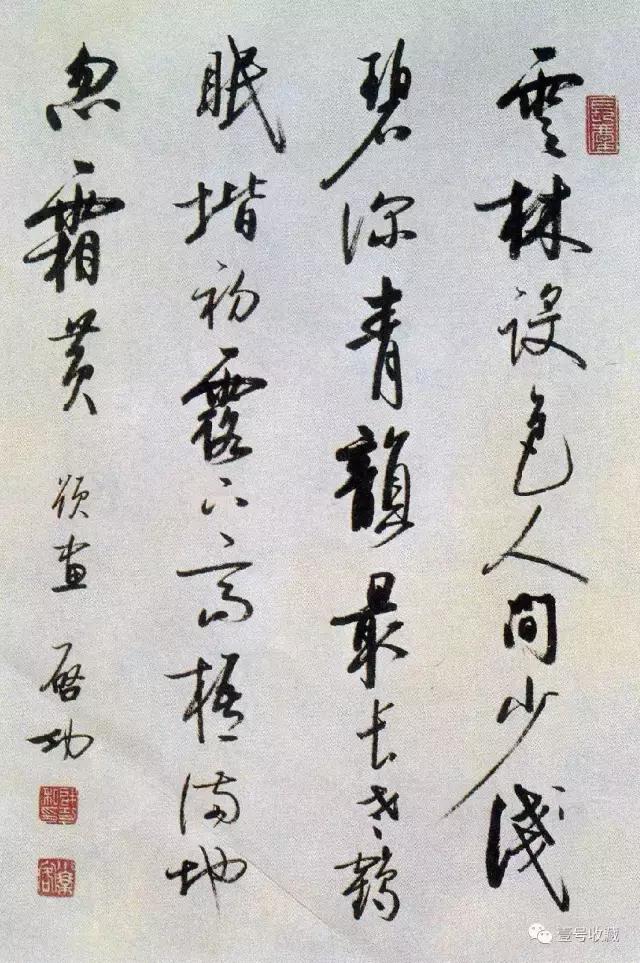 雲林設色人間少淺
碧深青韻最長老鶴
眠堦初露下高梧滿地
忽霜黃 題畫 啟功
壹号收藏